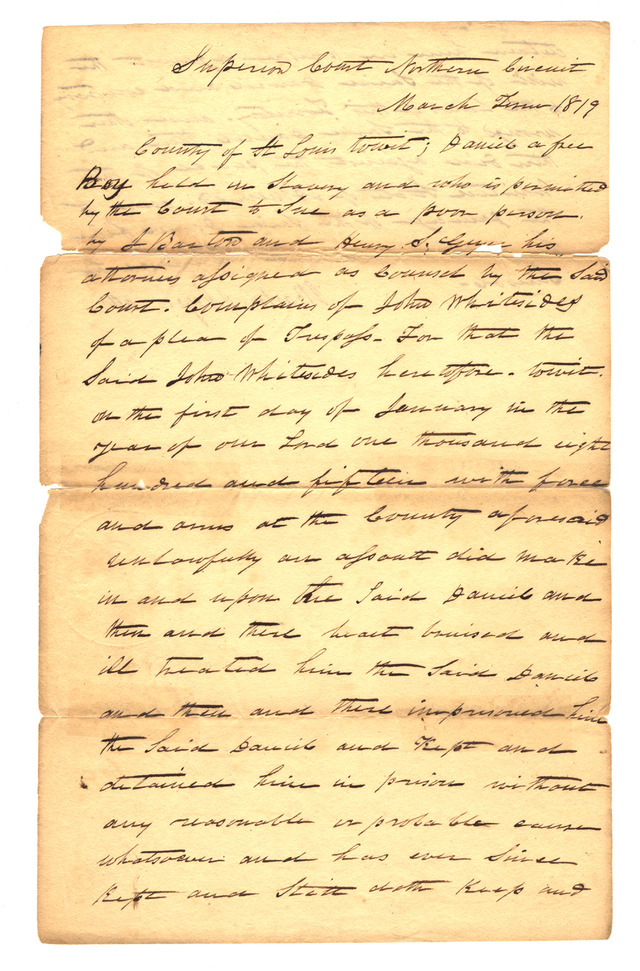 Superior Court Northern Circuit
March Term 1819
County of St Louis towit; Daniel a free
Boy held in Slavery and who is permitted
by the Court to Sue as a poor person.
by J Barton and Henry S. Geyer his
attornies assigned as Counsel by the Said
Court. Complains of John Whitesides
of a plea of Trespass - For that the
Said John Whitesides heretofore - towit.
on the first day of January in the
year of our Lord one thousand eight
hundred and fifteen with force
and arms at the County aforesaid
unlawfully an assault did make
in and upon the Said Daniel and
then and there beat bruised and
ill treated him the Said Daniel
and then and there imprisoned him
the Said Daniel and Kept and
detained him in prison without
any reasonable or probable cause
whatsoever and has ever Since
Kept and Still doth Keep and